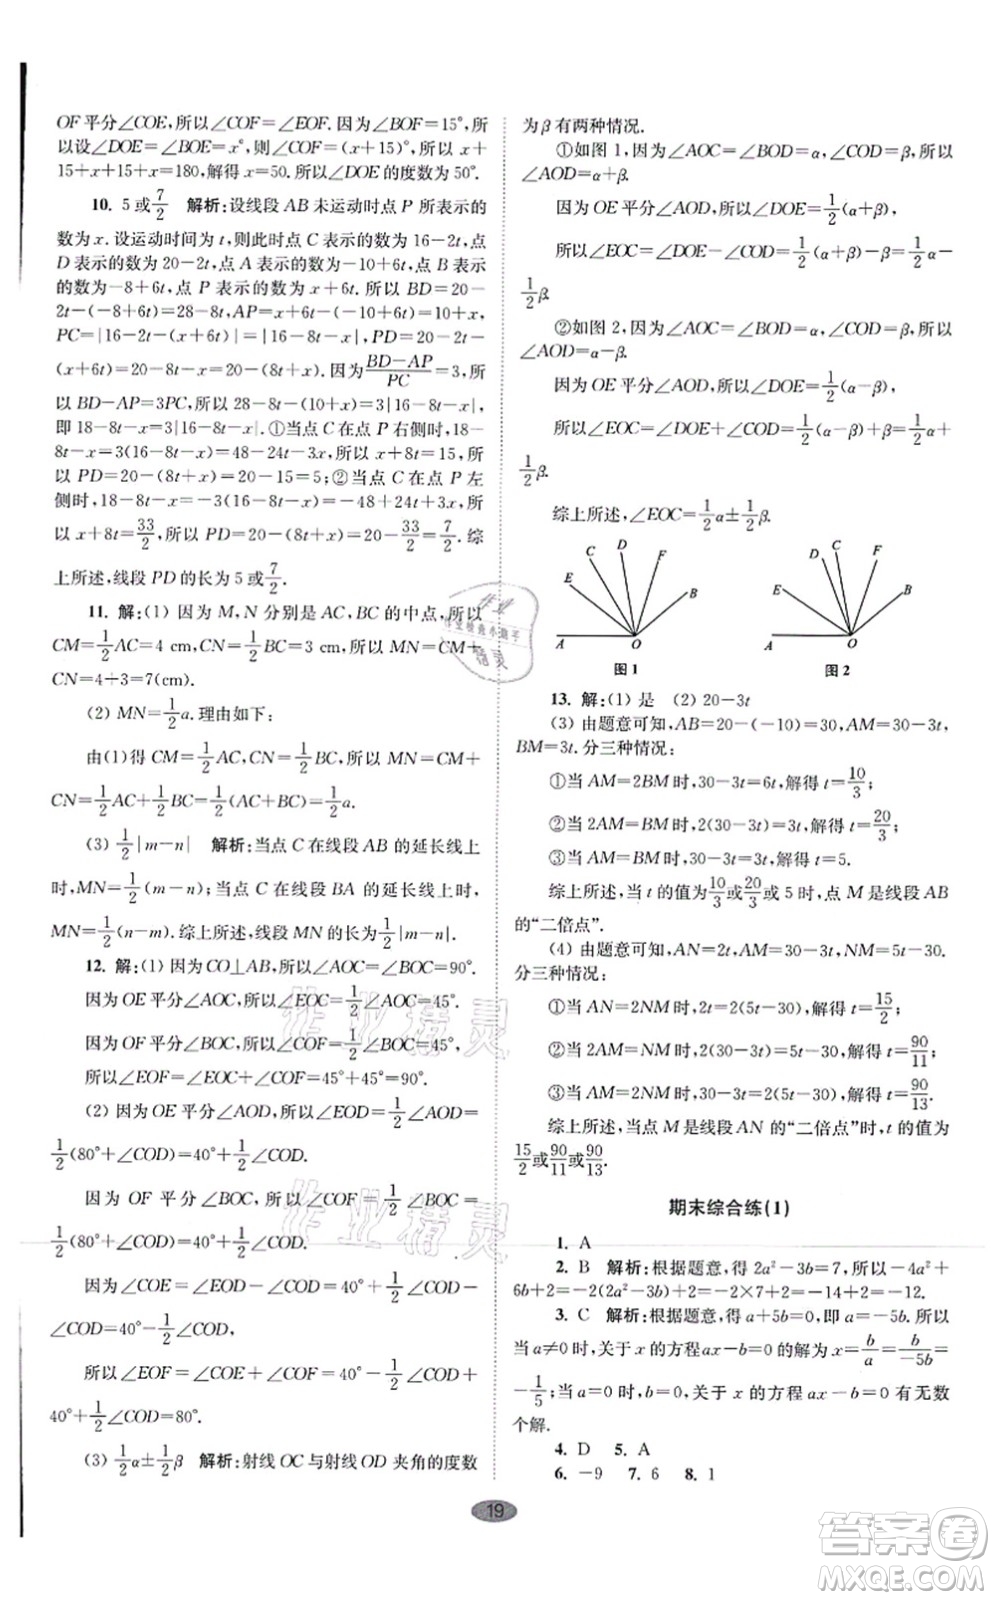 OF平分∠COE,所以∠COF=∠EOF.因为∠BOF=15°,所
以设∠DOE=∠BOE=x°,则∠COF=(x+15)°.所以x+
15+15+x+x=180,解得x=50.所以∠DOE的度数为50°.
10. 5或7/2 解析:设线段AB未运动时点P所表示的
数为x.设运动时间为t,则此时点C表示的数为16-2t,点
D表示的数为20-2t,点A表示的数为-10+6t,点B表示
的数为-8+6t,点P表示的数为x+6t.所以BD=20-
2t-(-8+6t)=28-8t,AP=x+6t-(-10+6t)=10+x,
PC=|16-2t-(x+6t)|=|16-8t-x|,PD=20-2t-
(x+6t)=20-8t-x=20-(8t+x).因为(BD-AP)/PC=3,所
以BD-AP=3PC,所以28-8t-(10+x)=3|16-8t-x|,
即18-8t-x=3|16-8t-x|.①当点C在点P右侧时,18-
8t-x=3(16-8t-x)=48-24t-3x,所以x+8t=15,所
以PD=20-(8t+x)=20-15=5;②当点C在点P左
侧时,18-8t-x=-3(16-8t-x)=-48+24t+3x,所
以x+8t=33/2,所以PD=20-(8t+x)=20-33/2=7/2.综
上所述,线段PD的长为5或7/2.
11. 解:(1) 因为M,N分别是AC,BC的中点,所以
CM=1/2AC=4 cm,CN=1/2BC=3 cm,所以MN=CM+
CN=4+3=7(cm).
(2) MN=1/2a.理由如下:
由(1)得CM=1/2AC,CN=1/2BC,所以MN=CM+
CN=1/2AC+1/2BC=1/2(AC+BC)=1/2a.
(3) 1/2|m-n| 解析:当点C在线段AB的延长线上
时,MN=1/2(m-n);当点C在线段BA的延长线上时,
MN=1/2(n-m).综上所述,线段MN的长为1/2|m-n|.
12. 解:(1) 因为CO⊥AB,所以∠AOC=∠BOC=90°.
因为OE平分∠AOC,所以∠EOC=1/2∠AOC=45°.
因为OF平分∠BOC,所以∠COF=1/2∠BOC=45°,
所以∠EOF=∠EOC+∠COF=45°+45°=90°.
(2) 因为OE平分∠AOD,所以∠EOD=1/2∠AOD=
1/2(80°+∠COD)=40°+1/2∠COD.
因为OF平分∠BOC,所以∠COF=1/2∠BOC=
1/2(80°+∠COD)=40°+1/2∠COD.
因为∠COE=∠EOD-∠COD=40°+1/2∠COD-
∠COD=40°-1/2∠COD,
所以∠EOF=∠COE+∠COF=40°-1/2∠COD+
40°+1/2∠COD=80°.
(3) 1/2α±1/2β 解析:射线OC与射线OD夹角的度数
为β有两种情况.
①如图1,因为∠AOC=∠BOD=α,∠COD=β,所以
∠AOD=α+β.
因为OE平分∠AOD,所以∠DOE=1/2(α+β),
所以∠EOC=∠DOE-∠COD=1/2(α+β)-β=1/2α-
1/2β.
②如图2,因为∠AOC=∠BOD=α,∠COD=β,所以
∠AOD=α-β.
因为OE平分∠AOD,所以∠DOE=1/2(α-β),
所以∠EOC=∠DOE+∠COD=1/2(α-β)+β=1/2α+
1/2β.
综上所述,∠EOC=1/2α±1/2β.
A E C D F B O
图1
A E D C F B O
图2
13. 解:(1) 是 (2) 20-3t
(3) 由题意可知,AB=20-(-10)=30,AM=30-3t,
BM=3t.分三种情况:
①当AM=2BM时,30-3t=6t,解得t=10/3;
②当2AM=BM时,2(30-3t)=3t,解得t=20/3;
③当AM=BM时,30-3t=3t,解得t=5.
综上所述,当t的值为10/3或20/3或5时,点M是线段AB
的“二倍点”.
(4) 由题意可知,AN=2t,AM=30-3t,NM=5t-30.
分三种情况:
①当AN=2NM时,2t=2(5t-30),解得t=15/2;
②当2AM=NM时,2(30-3t)=5t-30,解得t=90/11;
③当AM=2NM时,30-3t=2(5t-30),解得t=90/13.
综上所述,当点M是线段AN的“二倍点”时,t的值为
15/2或90/11或90/13.
期末综合练(1)
1. A
2. B 解析:根据题意,得2a²-3b=7,所以-4a²+
6b+2=-2(2a²-3b)+2=-2×7+2=-14+2=-12.
3. C 解析:根据题意,得a+5b=0,即a=-5b.所以
当a≠0时,关于x的方程ax-b=0的解为x=b/a=b/-5b=
-1/5;当a=b=0时,关于x的方程ax-b=0有无数
个解.
4. D 5. A
6. -9 7. 6 8. 1
19
作业精灵
作业精灵
答案圈
MXQE.COM